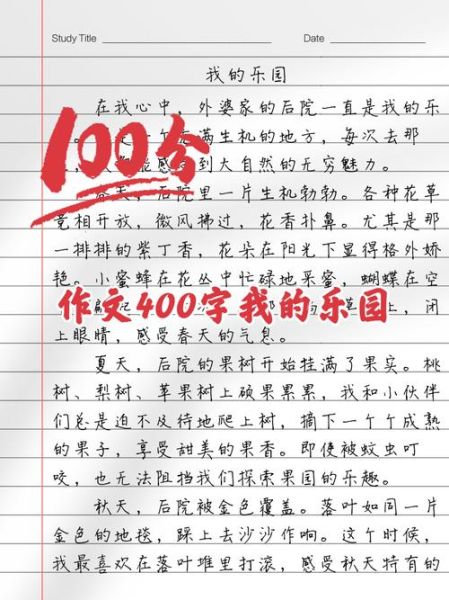 Study Title
Date
我的乐园
在我心中，外婆家的后院一直是我的乐
满生机的地方，每次去那
到大自然的无穷魅力。
100分
后院里一片生机勃勃。各种花草
竞相开放，微风拂过，花香扑鼻。尤其是那
一排排的紫丁香，花朵在阳光下显得格外娇
艳。小蜜蜂在花丛中忙碌地采蜜，蝴蝶在空
作文400字我的乐园
上，闭
上眼睛，感受春天的气息。
夏天，后院的果树开始挂满了果实。桃
树、梨树、苹果树上硕果累累，我和小伙伴
们总是迫不及待地爬上树，摘下一个个成熟
的果子，享受甜美的果香。即便被蚊虫叮
咬，也无法阻挡我们探索果园的乐趣。
秋天，后院被金色覆盖。落叶如同一片
金色的地毯，踩上去沙沙作响。这个时候，
我最喜欢在落叶堆里打滚，感受秋天特有的